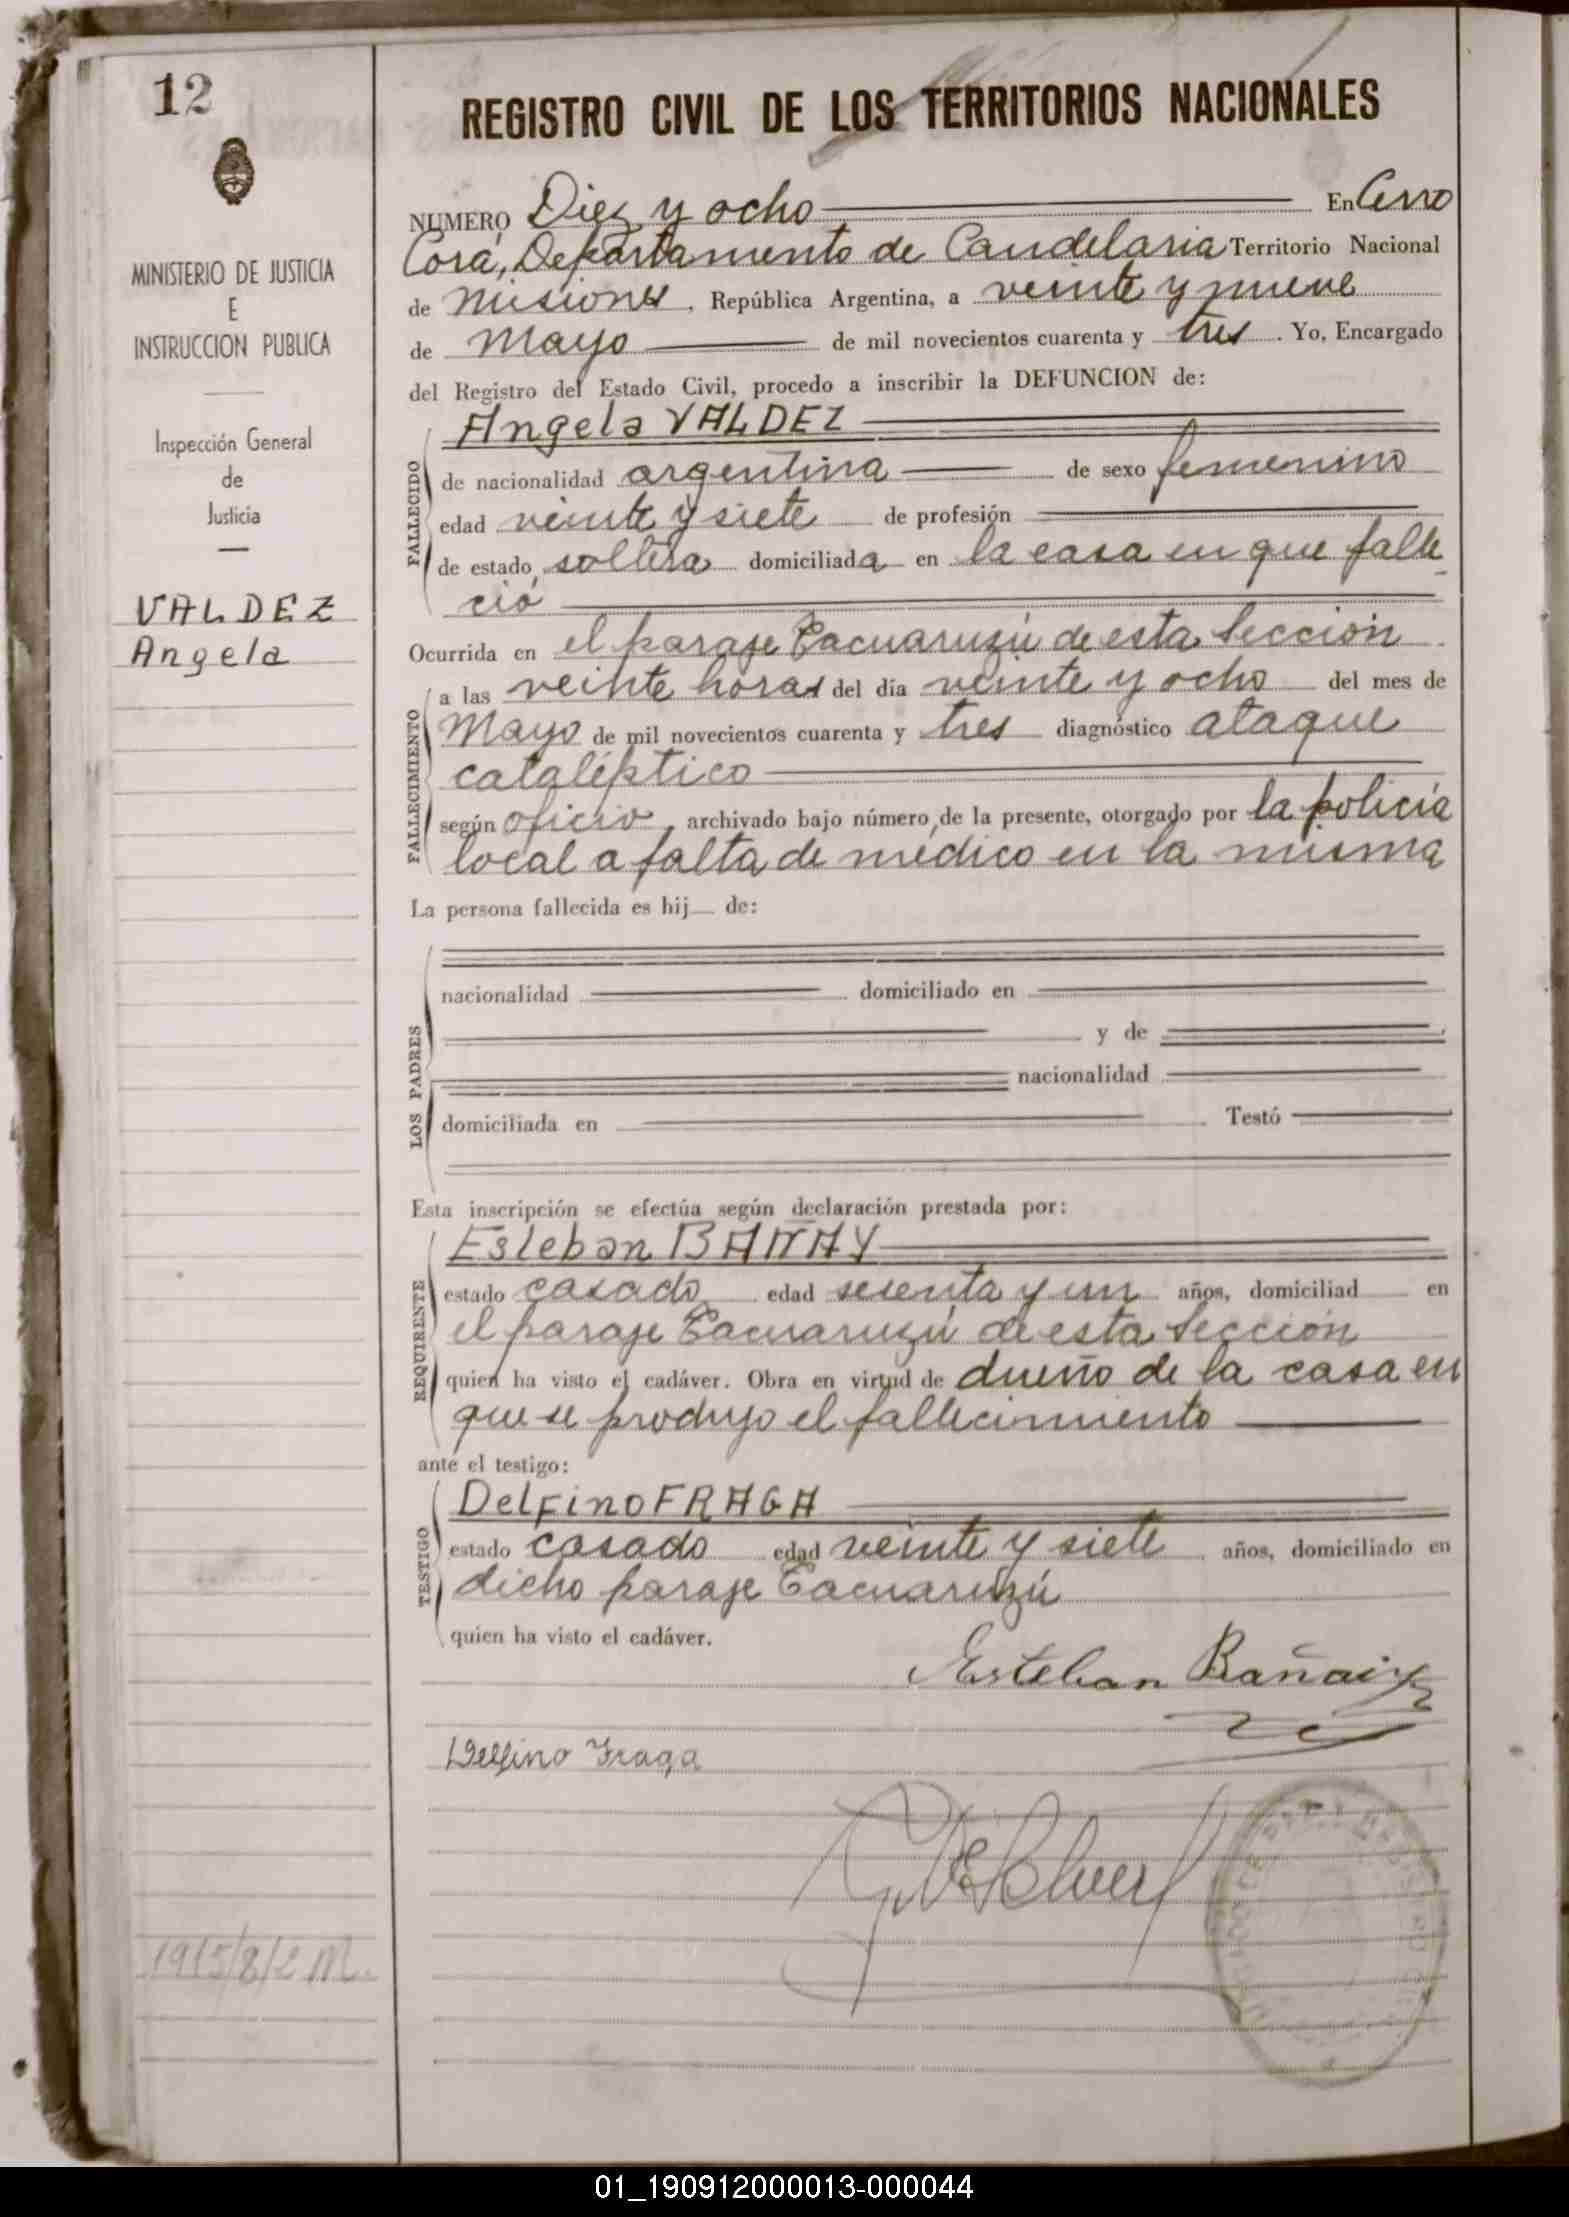 12
REGISTRO CIVIL DE LOS TERRITORIOS NACIONALES
MINISTERIO DE JUSTICIA
E
INSTRUCCION PUBLICA
Inspección General
de
Justicia
VALDEZ
Angela
NUMERO Diez y ocho En Cerro
Corá, Departamento de Candelaria Territorio Nacional
de Misiones, República Argentina, a veinte y nueve
de Mayo de mil novecientos cuarenta y tres. Yo, Encargado
del Registro del Estado Civil, procedo a inscribir la DEFUNCION de:
FALLECIDO
Angela VALDEZ
de nacionalidad argentina de sexo femenino
edad veinte y siete de profesión
de estado soltera domiciliada en la casa en que falle
ció
Ocurrida en el paraje Tacuaruzú de esta Sección
FALLECIMIENTO
a las veinte horas del día veinte y ocho del mes de
Mayo de mil novecientos cuarenta y tres diagnóstico ataque
cataléptico
según oficio, archivado bajo número, de la presente, otorgado por la policía
local a falta de médico en la misma
La persona fallecida es hij de:
LOS PADRES
nacionalidad domiciliado en
y de
nacionalidad
domiciliada en Testó
Esta inscripción se efectúa según declaración prestada por:
REQUIRENTE
Esteban BAÑAY
estado casado edad sesenta y un años, domiciliad en
el paraje Tacuaruzú de esta Sección
quien ha visto el cadáver. Obra en virtud de dueño de la casa en
que se produjo el fallecimiento
ante el testigo:
TESTIGO
Delfino FRAGA
estado casado edad veinte y siete años, domiciliado en
dicho paraje Tacuaruzú
quien ha visto el cadáver.
Esteban Bañaiy
Delfino Fraga
1915/8/2 M.
01_190912000013-000044